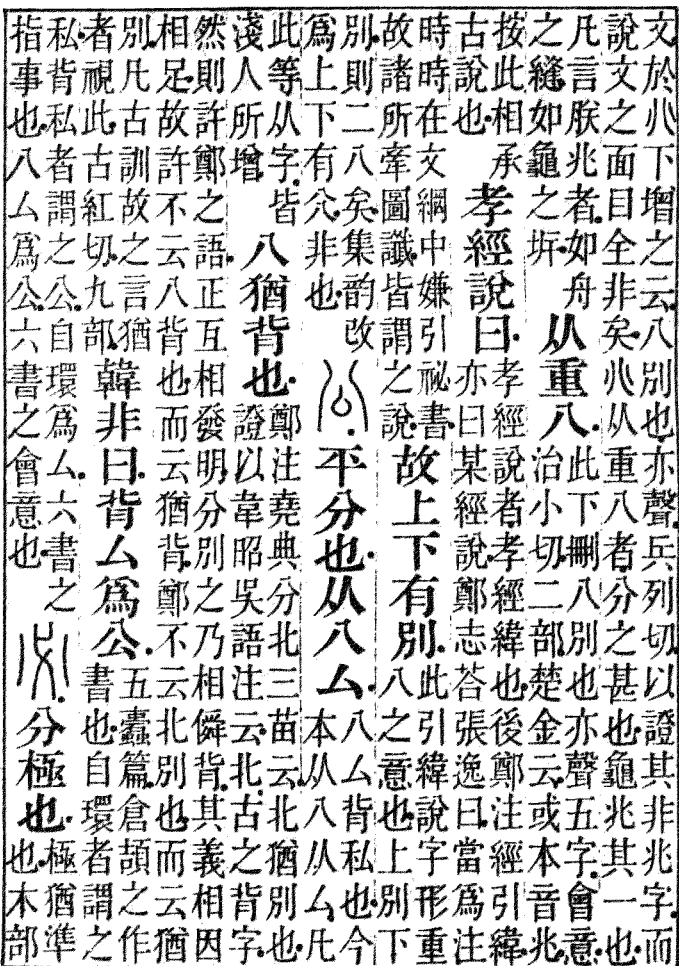 文於𠔁下增之云八別也亦聲兵列切以證其非兆字而
說文之面目全非矣𠔁从重八者分之甚也龜兆其一也
凡言朕兆者如舟之縫如龜之坼從重八此下刪八別也亦聲五字會意治小切二部楚金云或本音兆
按此相承古說也孝經說曰孝經說者孝經緯也後鄭注經引緯亦曰某經說鄭志荅張逸曰當爲注
時時在文綱中嫌引祕書故諸所牽圖讖皆謂之說故上下有別此引緯說字形重八之意也上別下
別則二八矣集韵改爲上下有𠔁非也公平分也从八厶八厶背私也今本从八从厶凡
此等从字皆淺人所增八猶背也鄭注堯典分北三苗云北猶別也證以韋昭吳語注云北古之背字
然則許鄭之語正互相發明分別之乃相僢背其義相因
相足故許不云八背也而云猶背鄭不云北別也而云猶
別凡古訓故之言猶者視此古紅切九部韓非曰背厶爲公五蠹篇倉頡之作書也自環者謂之
私背私者謂之公自環爲厶六書之指事也八厶爲公六書之會意也必分極也極猶準也木部